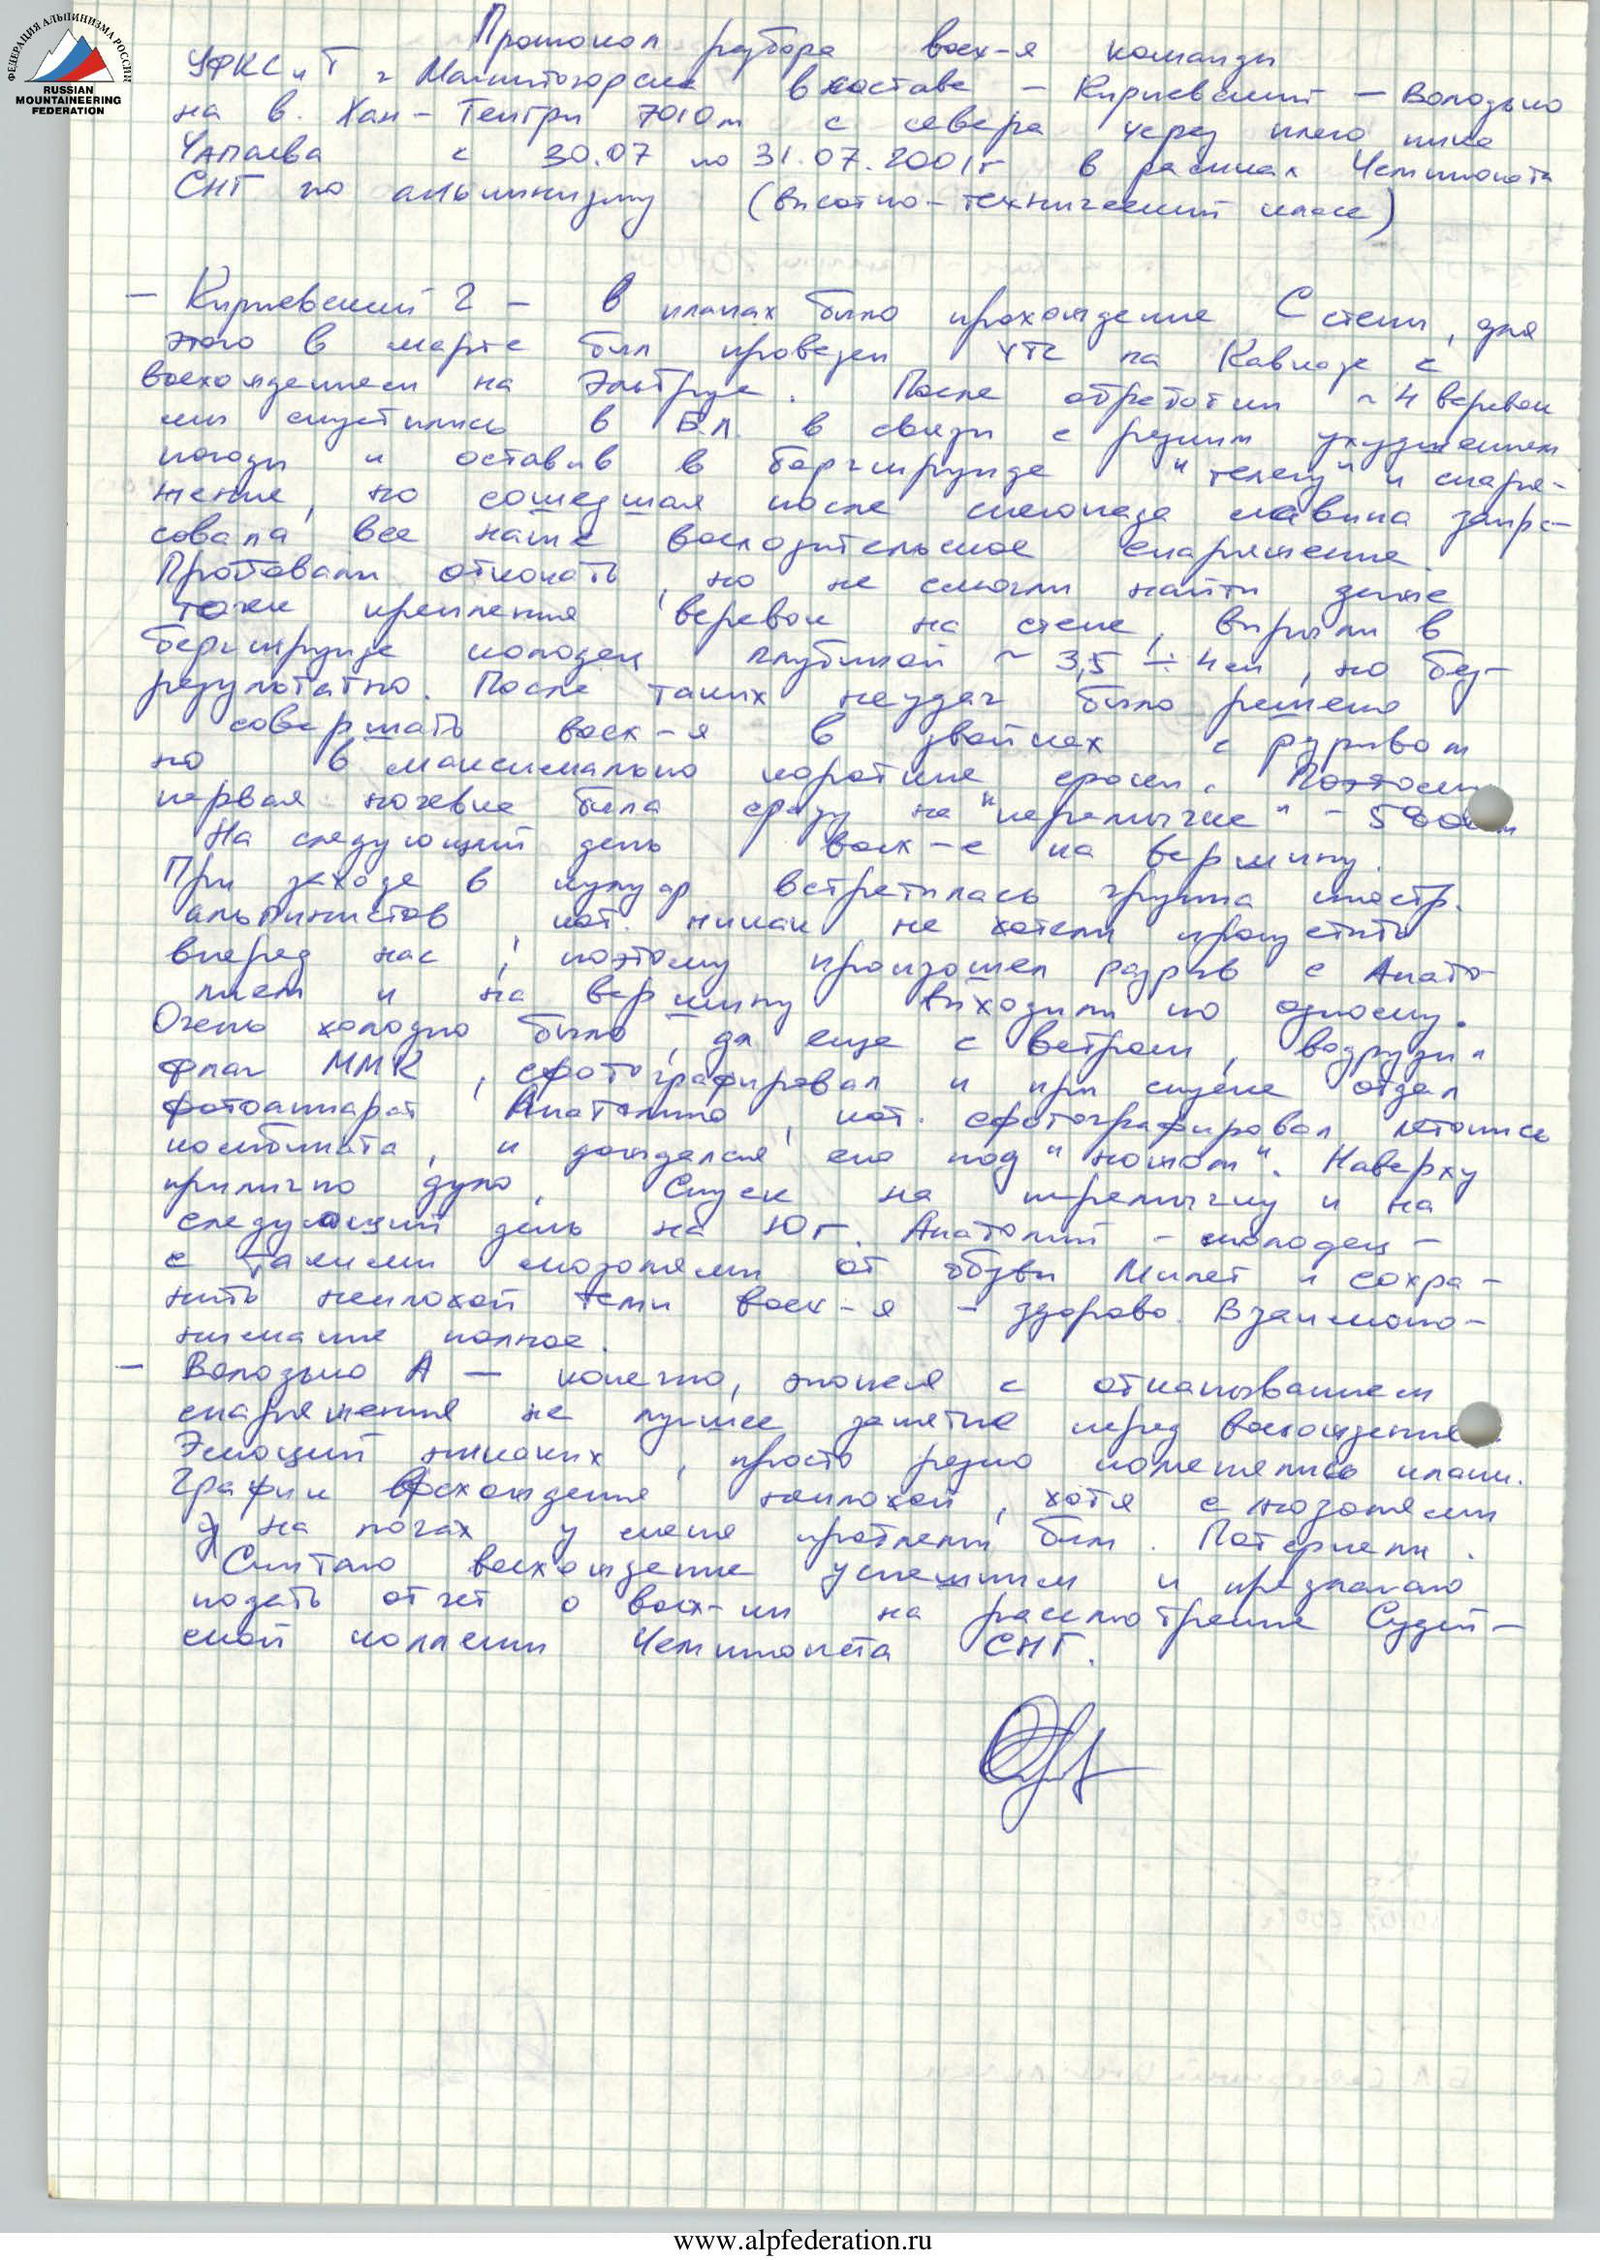 ФЕДЕРАЦИЯ АЛЬПИНИЗМА РОССИИ
RUSSIAN
MOUNTAINEERING
FEDERATION
Протокол разбора восх-я команды
УФКСиТ г Магнитогорска в составе – Кириевский – Володько
на в. Хан-Тенгри 7010м с севера через плечо пика
Чапаева с 30.07 по 31.07.2001г в рамках Чемпионата
СНГ по альпинизму (высотно-технический класс)
– Кириевский Г – В планах было прохождение С стены, для
этого в марте был проведен УТС на Кавказе с
восхождением на Эльбрус. После обработки ~ 4 веревок
мы спустились в Б.Л. в связи с резким ухудшением
погоды и оставив в бергшрунде "телегу" и снаря-
жение, но сошедшая после снегопада лавина запрес-
совала все наше восходительское снаряжение.
Пробовали откопать, но не смогли найти даже
точки крепления веревок на стене, вырыли в
бергшрунде колодец глубиной ~ 3,5 ÷ 4м, но без-
результатно. После таких неудач было решено
совершать восх-я в двойках с разрывом
но в максимально короткие сроки. Поэтому
первая ночевка была сразу на "перемычке" – 5800м
На следующий день восх-е на вершину.
При заходе в кулуар встретилась группа иностр.
альпинистов, кот. никак не хотели пропустить
вперед нас, поэтому произошел разрыв с Анато-
лием и на вершину выходили по одному.
Очень холодно было, да еще с ветром, водрузил
флаг ММК, сфотографировал и при спуске отдал
фотоаппарат Анатолию, кот. сфотографировал летопись
комбината, и дождался его под "ножом". Наверху
прилично дуло. Спуск на перемычку и на
следующий день на Юг. Анатолий – молодец –
с такими мозолями от обуви Милет и сохра-
нить неплохой темп восх-я – здорово. Взаимопо-
нимание полное.
– Володько А – конечно, эпопея с откапыванием
снаряжения не лучшее занятие перед восхождением.
Эмоций никаких, просто резко поменялись планы.
График восхождения неплохой, хотя с мозолями
на ногах у меня проблемы были. Потерпели.
Считаю восхождение успешным и предлагаю
подать отчет о восх-ии на рассмотрение Судей-
ской коллегии Чемпионата СНГ.
www.alpfederation.ru